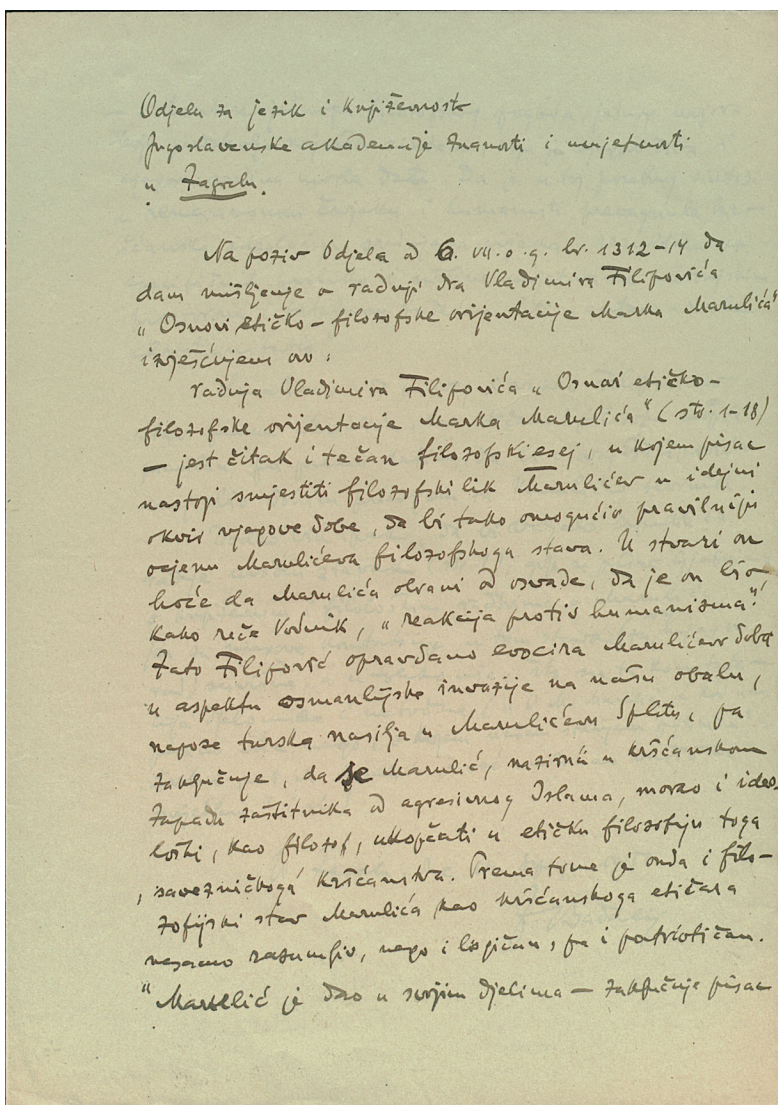 Odjelu za jezik i književnost
Jugoslavenske akademije znanosti i umjetnosti
u Zagrebu.
Na poziv Odjela od 6. VII. o. g. br. 1312-14 da
dam mišljenje o radnji dra Vladimira Filipovića
„Osnovi etičko-filozofske orijentacije Marka Marulića"
izvješćujem ovo:
radnja Vladimira Filipovića „Osnovi etičko-
filozofske orijentacije Marka Marulića" (str. 1-18)
— jest čitak i tečan filozofski esej, u kojem pisac
nastoji smjestiti filozofski lik Marulićev u idejni
okvir njegove dobe, da bi tako omogućio pravilniju
ocjenu Marulićeva filozofskoga stava. U stvari on
hoće da Marulića obrani od osvade, da je on bio,
kako reče Vodnik, „reakcija protiv humanizma".
Zato Filipović opravdano evocira Marulićevo doba
u aspektu osmanlijske invazije na našu obalu,
napose turska nasilja u Marulićevu Splitu, pa
zaključuje, da je Marulić, nazirući u kršćanskom
Zapadu zaštitnika od agresivnog Islama, morao i ideo-
loški, kao filozof, ukopčati u etičku filozofiju toga
, savezničkoga' kršćanstva. Prema tome je onda i filo-
zofijski stav Marulića kao kršćanskoga etičara
nesamo razumljiv, nego i logičan, pa i patriotičan.
„Marulić je dao u svojim djelima — zaključuje pisac